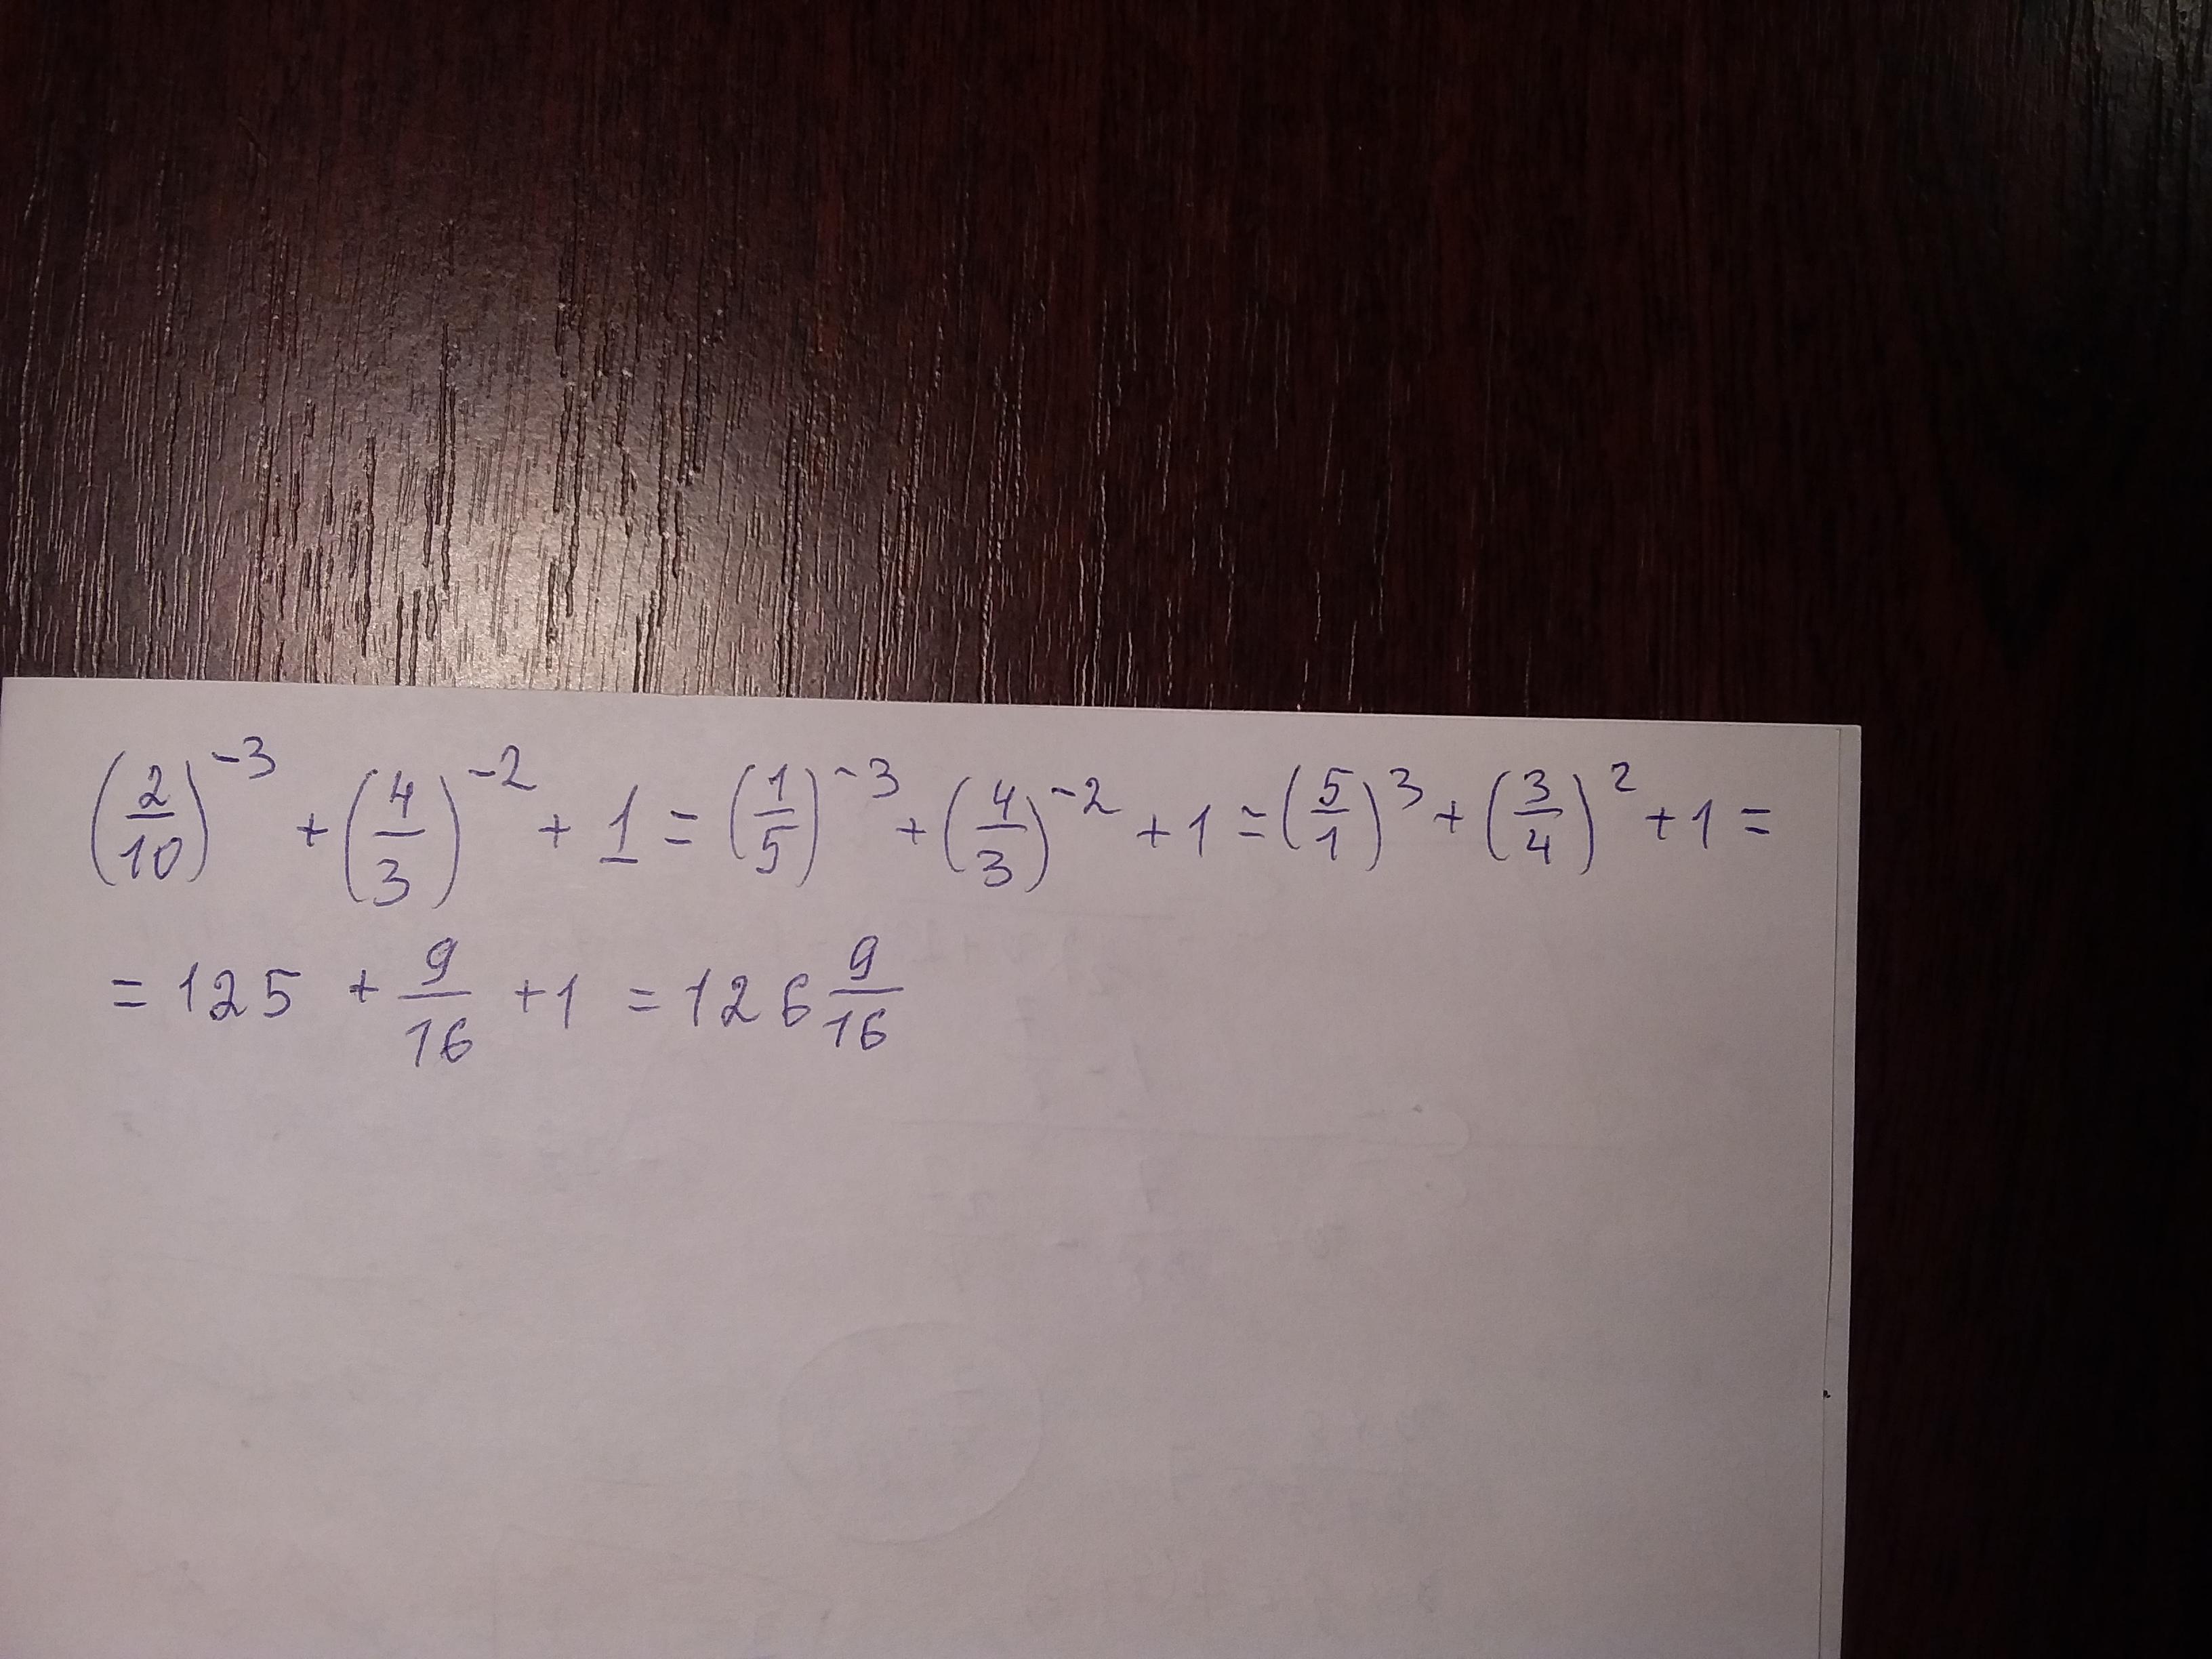 (2/10)^-3 + (4/3)^-2 + 1 = (1/5)^-3 + (4/3)^-2 + 1 = (5/1)^3 + (3/4)^2 + 1 =
= 125 + 9/16 + 1 = 126 9/16